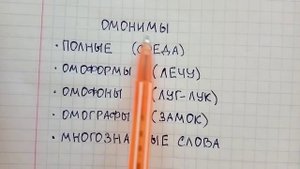 ОМОНИМЫ
• ПОЛНЫЕ (СРЕДА)
• ОМОФОРМЫ (ЛЕЧУ)
• ОМОФОНЫ (ЛУГ-ЛУК)
• ОМОГРАФЫ (ЗАМОК)
• МНОГОЗНАЧНЫЕ СЛОВА